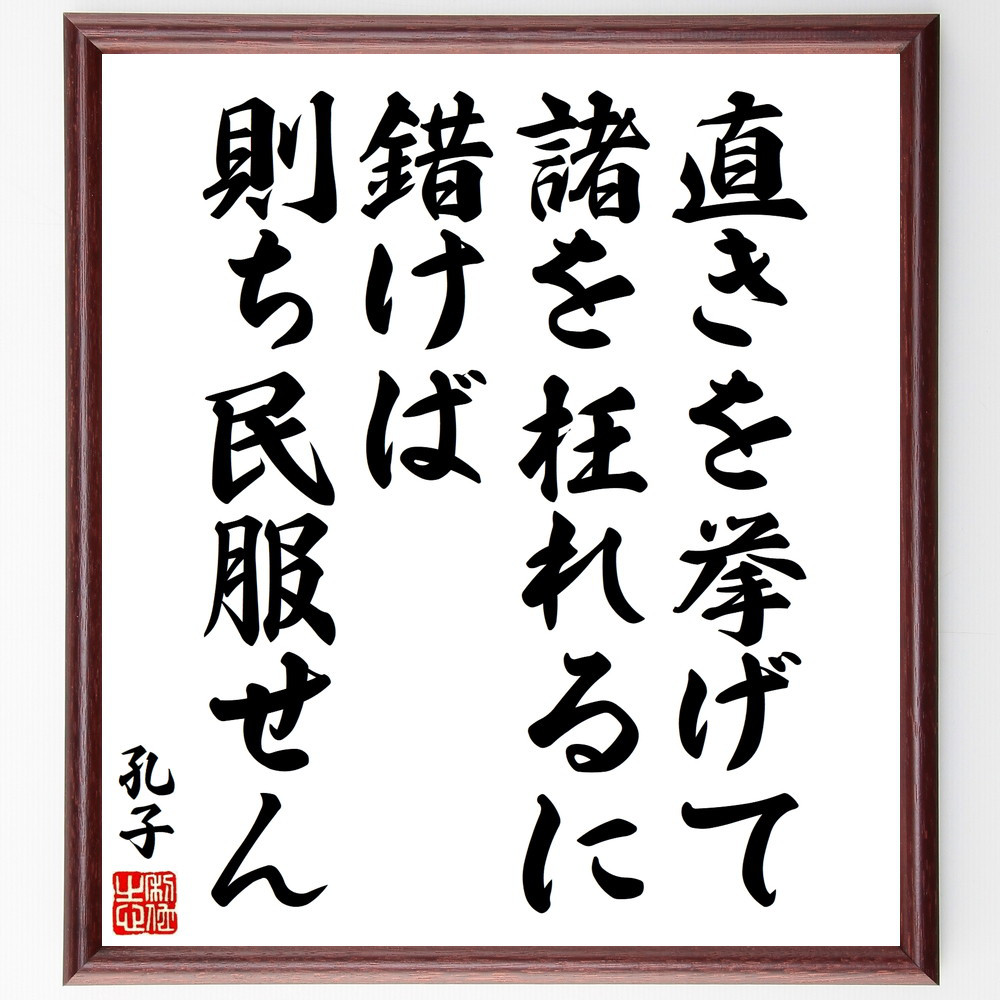 直きを挙げて
諸を枉れるに
錯けば
則ち民服せん
孔子